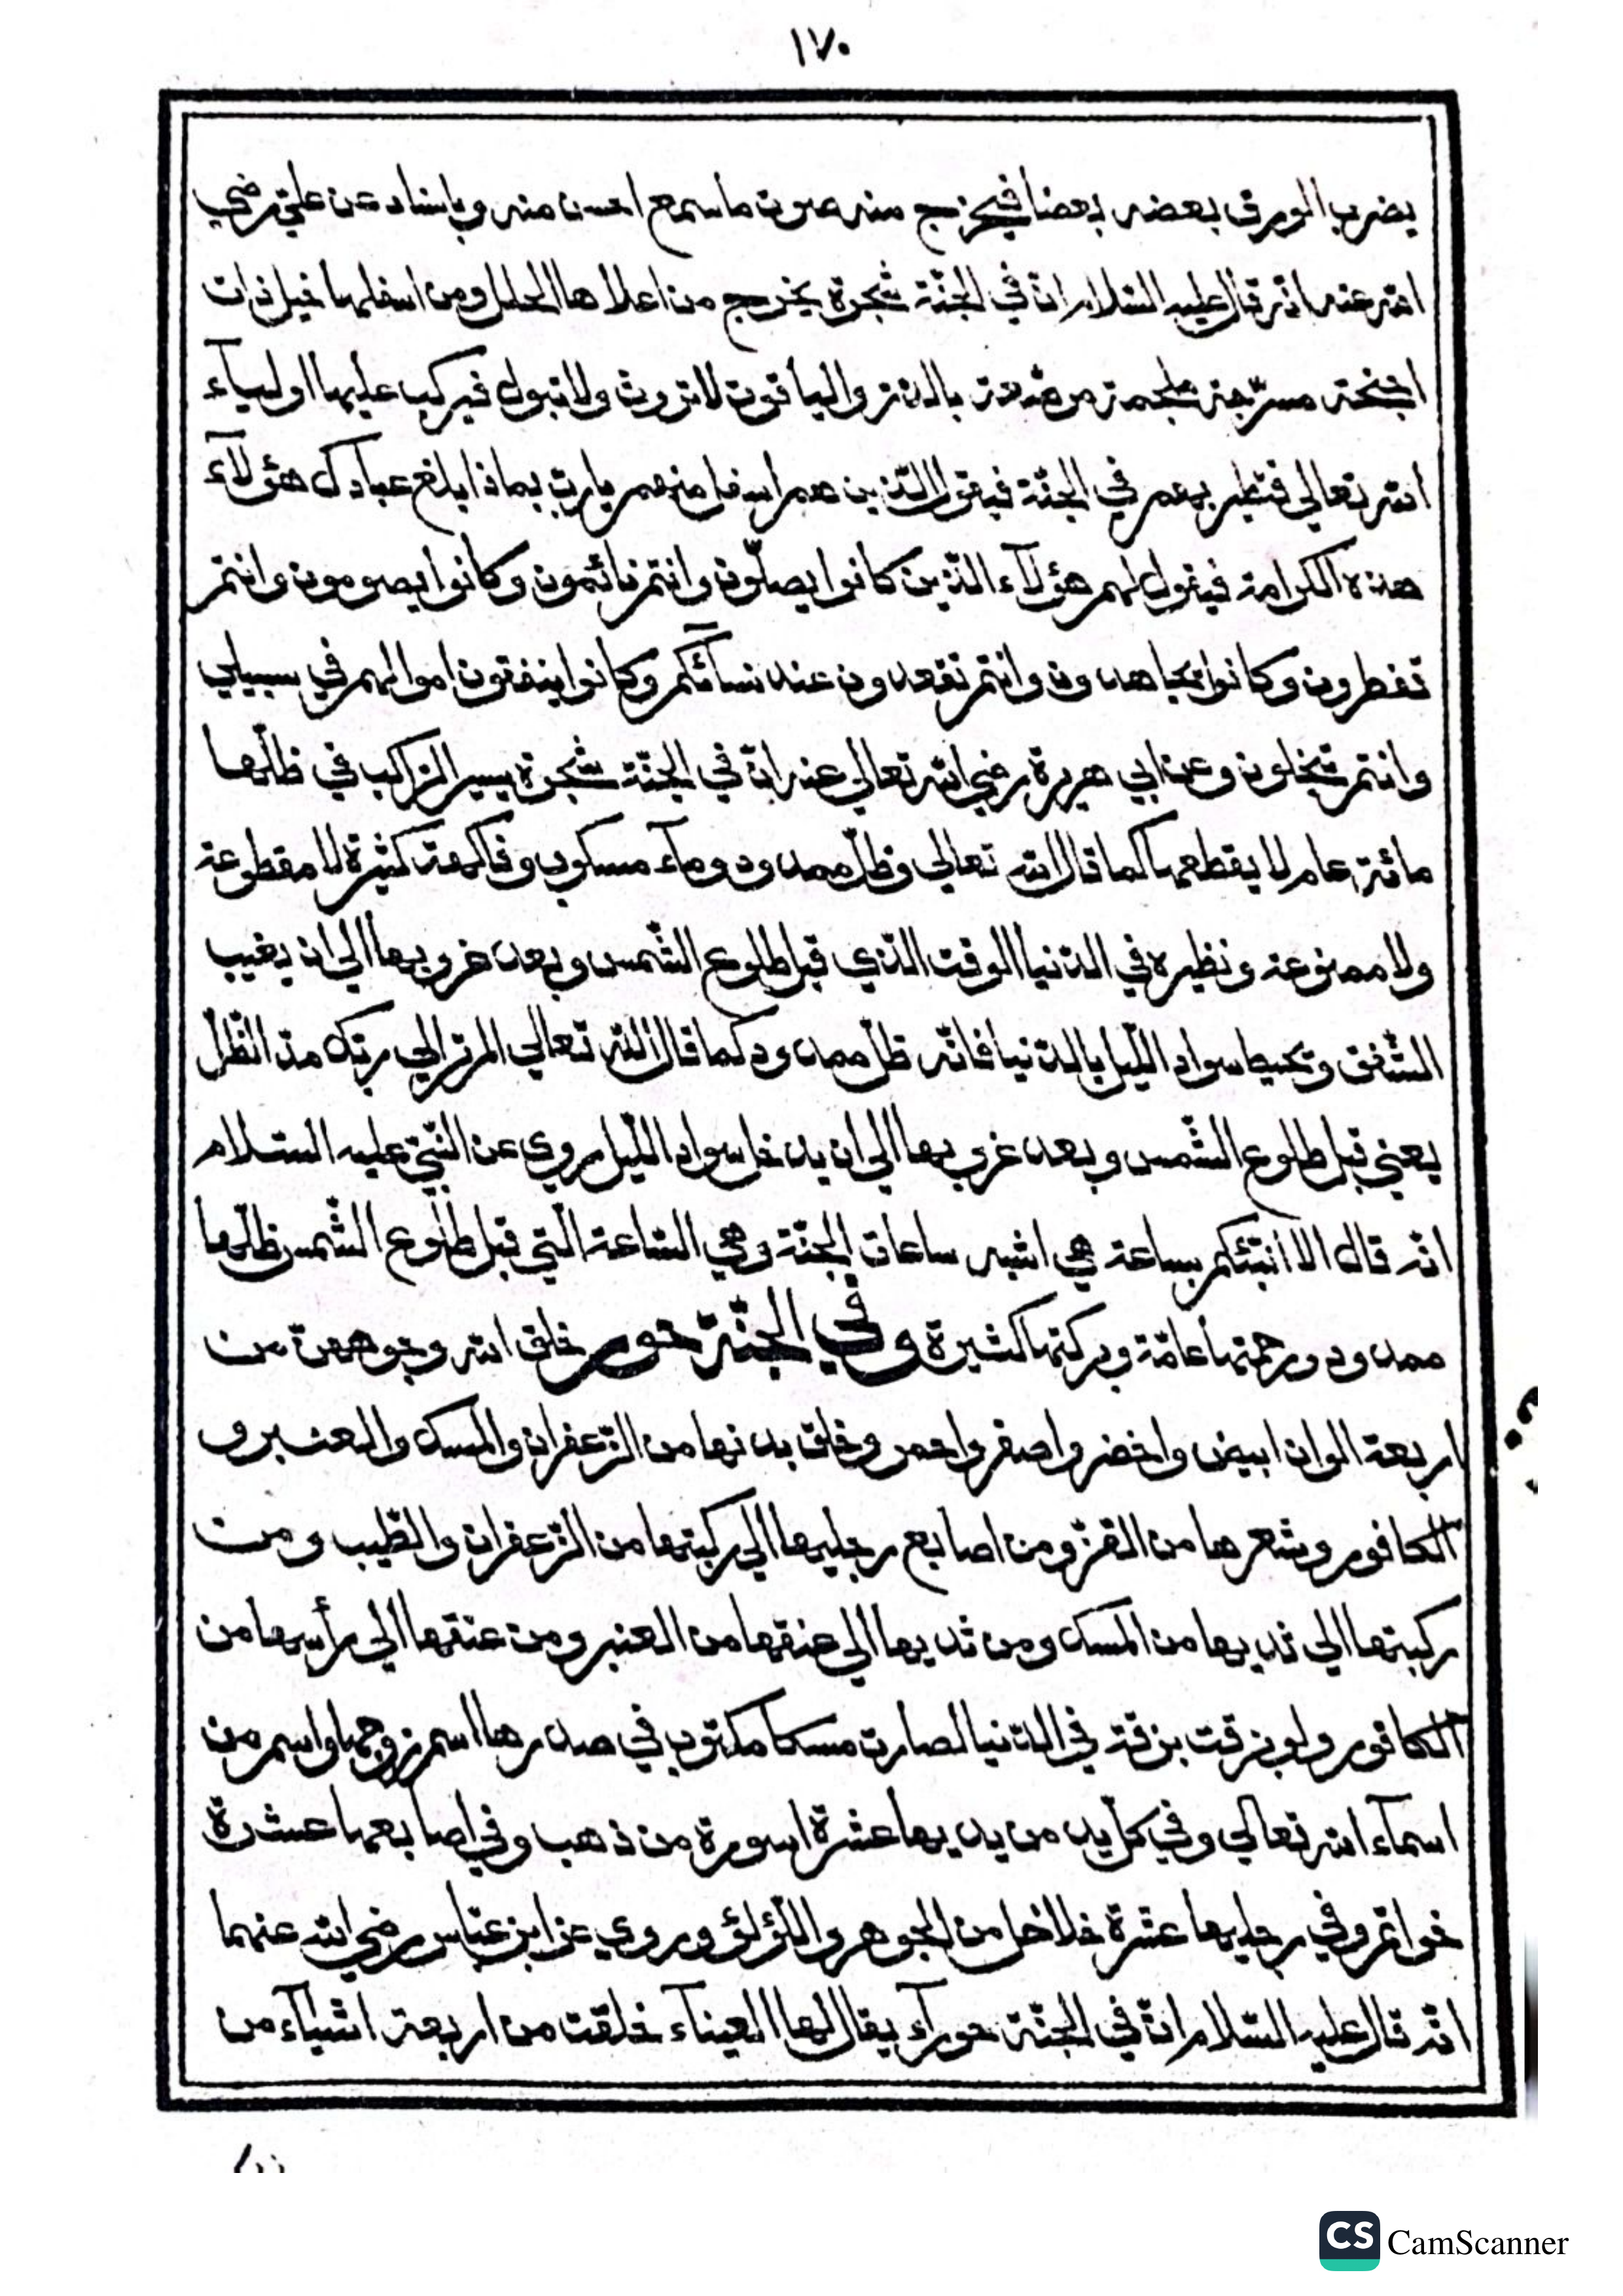 ١٧٠
يضرب الورق بعضه بعضا فيخرج منه صوت ما سمع احسن منه وباسناد عن عليّ رضي
الله عنه انّه قال عليه السّلام انّ في الجنّة شجرة يخرج من اعلاها الحلل ومن اسفلها خيل ذات
اجنحة مسرّجة ملجمة مرصّعة بالدّرّ والياقوت لا تروث ولا تبول فيركب عليها اولياء
الله تعالي فتطير بهم في الجنّة فيقول الّذين هم اسفل منهم يا ربّ بماذا بلغ عبادك هؤلآء
هذه الكرامة فيقول لهم هؤلآء الّذين كانوا يصلّون وانتم نائمون وكانوا يصومون وانتم
تفطرون وكانوا يجاهدون وانتم تقعدون عند نسآئكم وكانوا ينفقون اموالهم في سبيلي
وانتم تبخلون وعن ابي هريرة رضي الله تعالي عنه انّ في الجنّة شجرة يسير الرّاكب في ظلّها
مائة عام لا يقطعها كما قال الله تعالي وظلّ ممدود ومآء مسكوب وفاكهة كثيرة لا مقطوعة
ولا ممنوعة ونظيره في الدّنيا الوقت الّذي قبل طلوع الشّمس وبعد غروبها الي ان يغيب
الشّفق ويحيط سواد اللّيل بالدّنيا فانّه ظلّ ممدود كما قال الله تعالي الم تر الي ربّك مدّ الظّلّ
يعني قبل طلوع الشّمس وبعد غروبها الي ان يدخل سواد اللّيل روي عن النّبيّ عليه السّلام
انّه قال الا انبّئكم بساعة هي اشبه ساعات الجنّة وهي السّاعة الّتي قبل طلوع الشّمس ظلّها
ممدود ورحمتها عامّة وبركتها كثيرة وفي الجنّة حور خلق الله وجوههنّ من
اربعة الوان ابيض واخضر واصفر واحمر وخلق بدنها من الزّعفران والمسك والعنبر و
الكافور وشعرها من القزّ ومن اصابع رجليها الي ركبتها من الزّعفران والطّيب ومن
ركبتها الي ثديها من المسك ومن ثديها الي عنقها من العنبر ومن عنقها الي رأسها من
الكافور ولو بزقت بزقة في الدّنيا لصارت مسكا مكتوب في صدرها اسم زوجها واسم من
اسمآء الله تعالي وفي كلّ يد من يديها عشرة اسورة من ذهب وفي اصابعها عشرة
خواتم وفي رجليها عشرة خلاخل من الجوهر واللّؤلؤ وروي عن ابن عبّاس رضي الله عنهما
انّه قال عليه السّلام انّ في الجنّة حورآء يقال لها العينآء خلقت من اربعة اشياء من
CS CamScanner